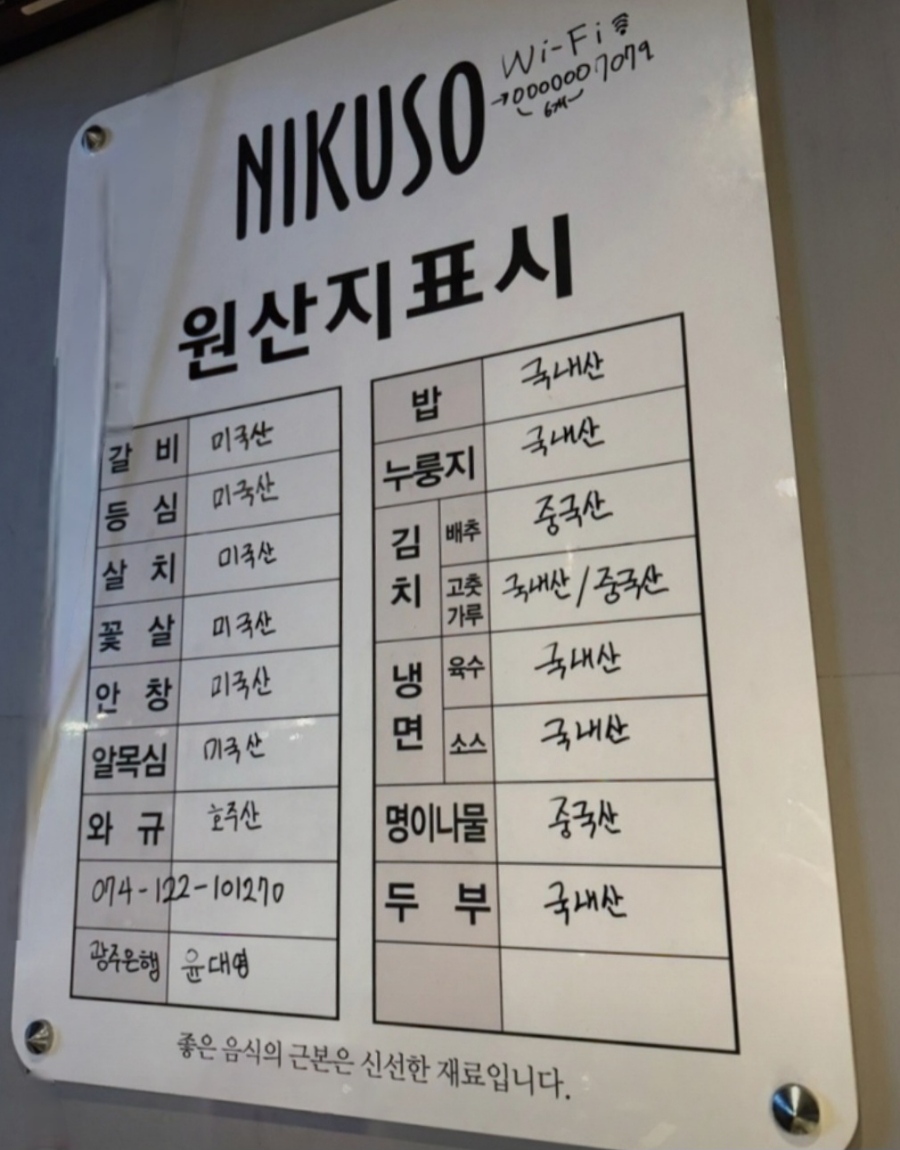 Wi-Fi
NIKUSO →0000007079
6개
원산지표시
갈 비 미국산
등 심 미국산
살 치 미국산
꽃 살 미국산
안 창 미국산
알목심 미국산
와 규 호주산
074-122-101270
광주은행 윤대영
밥 국내산
누룽지 국내산
김치 배추 중국산
고춧가루 국내산/중국산
냉면 육수 국내산
소스 국내산
명이나물 중국산
두 부 국내산
좋은 음식의 근본은 신선한 재료입니다.